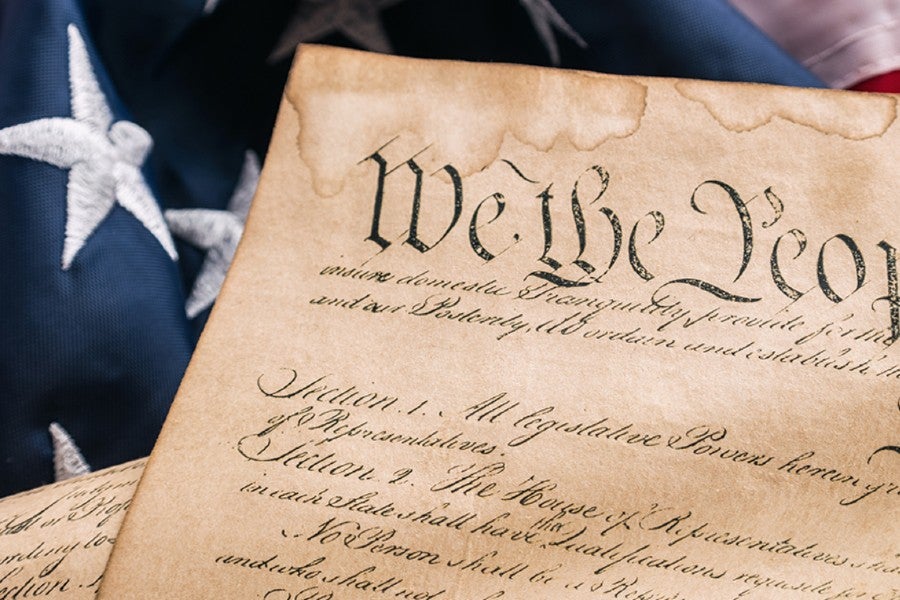 We the Peop
insure domestic Tranquility, provide for
and our Posterity, do ordain and establish
Section. 1. All legislative Powers herein
of Representatives.
Section. 2. The House of Representatives
in each State shall have the Qualifications requisite for
No Person shall be a
and who shall not